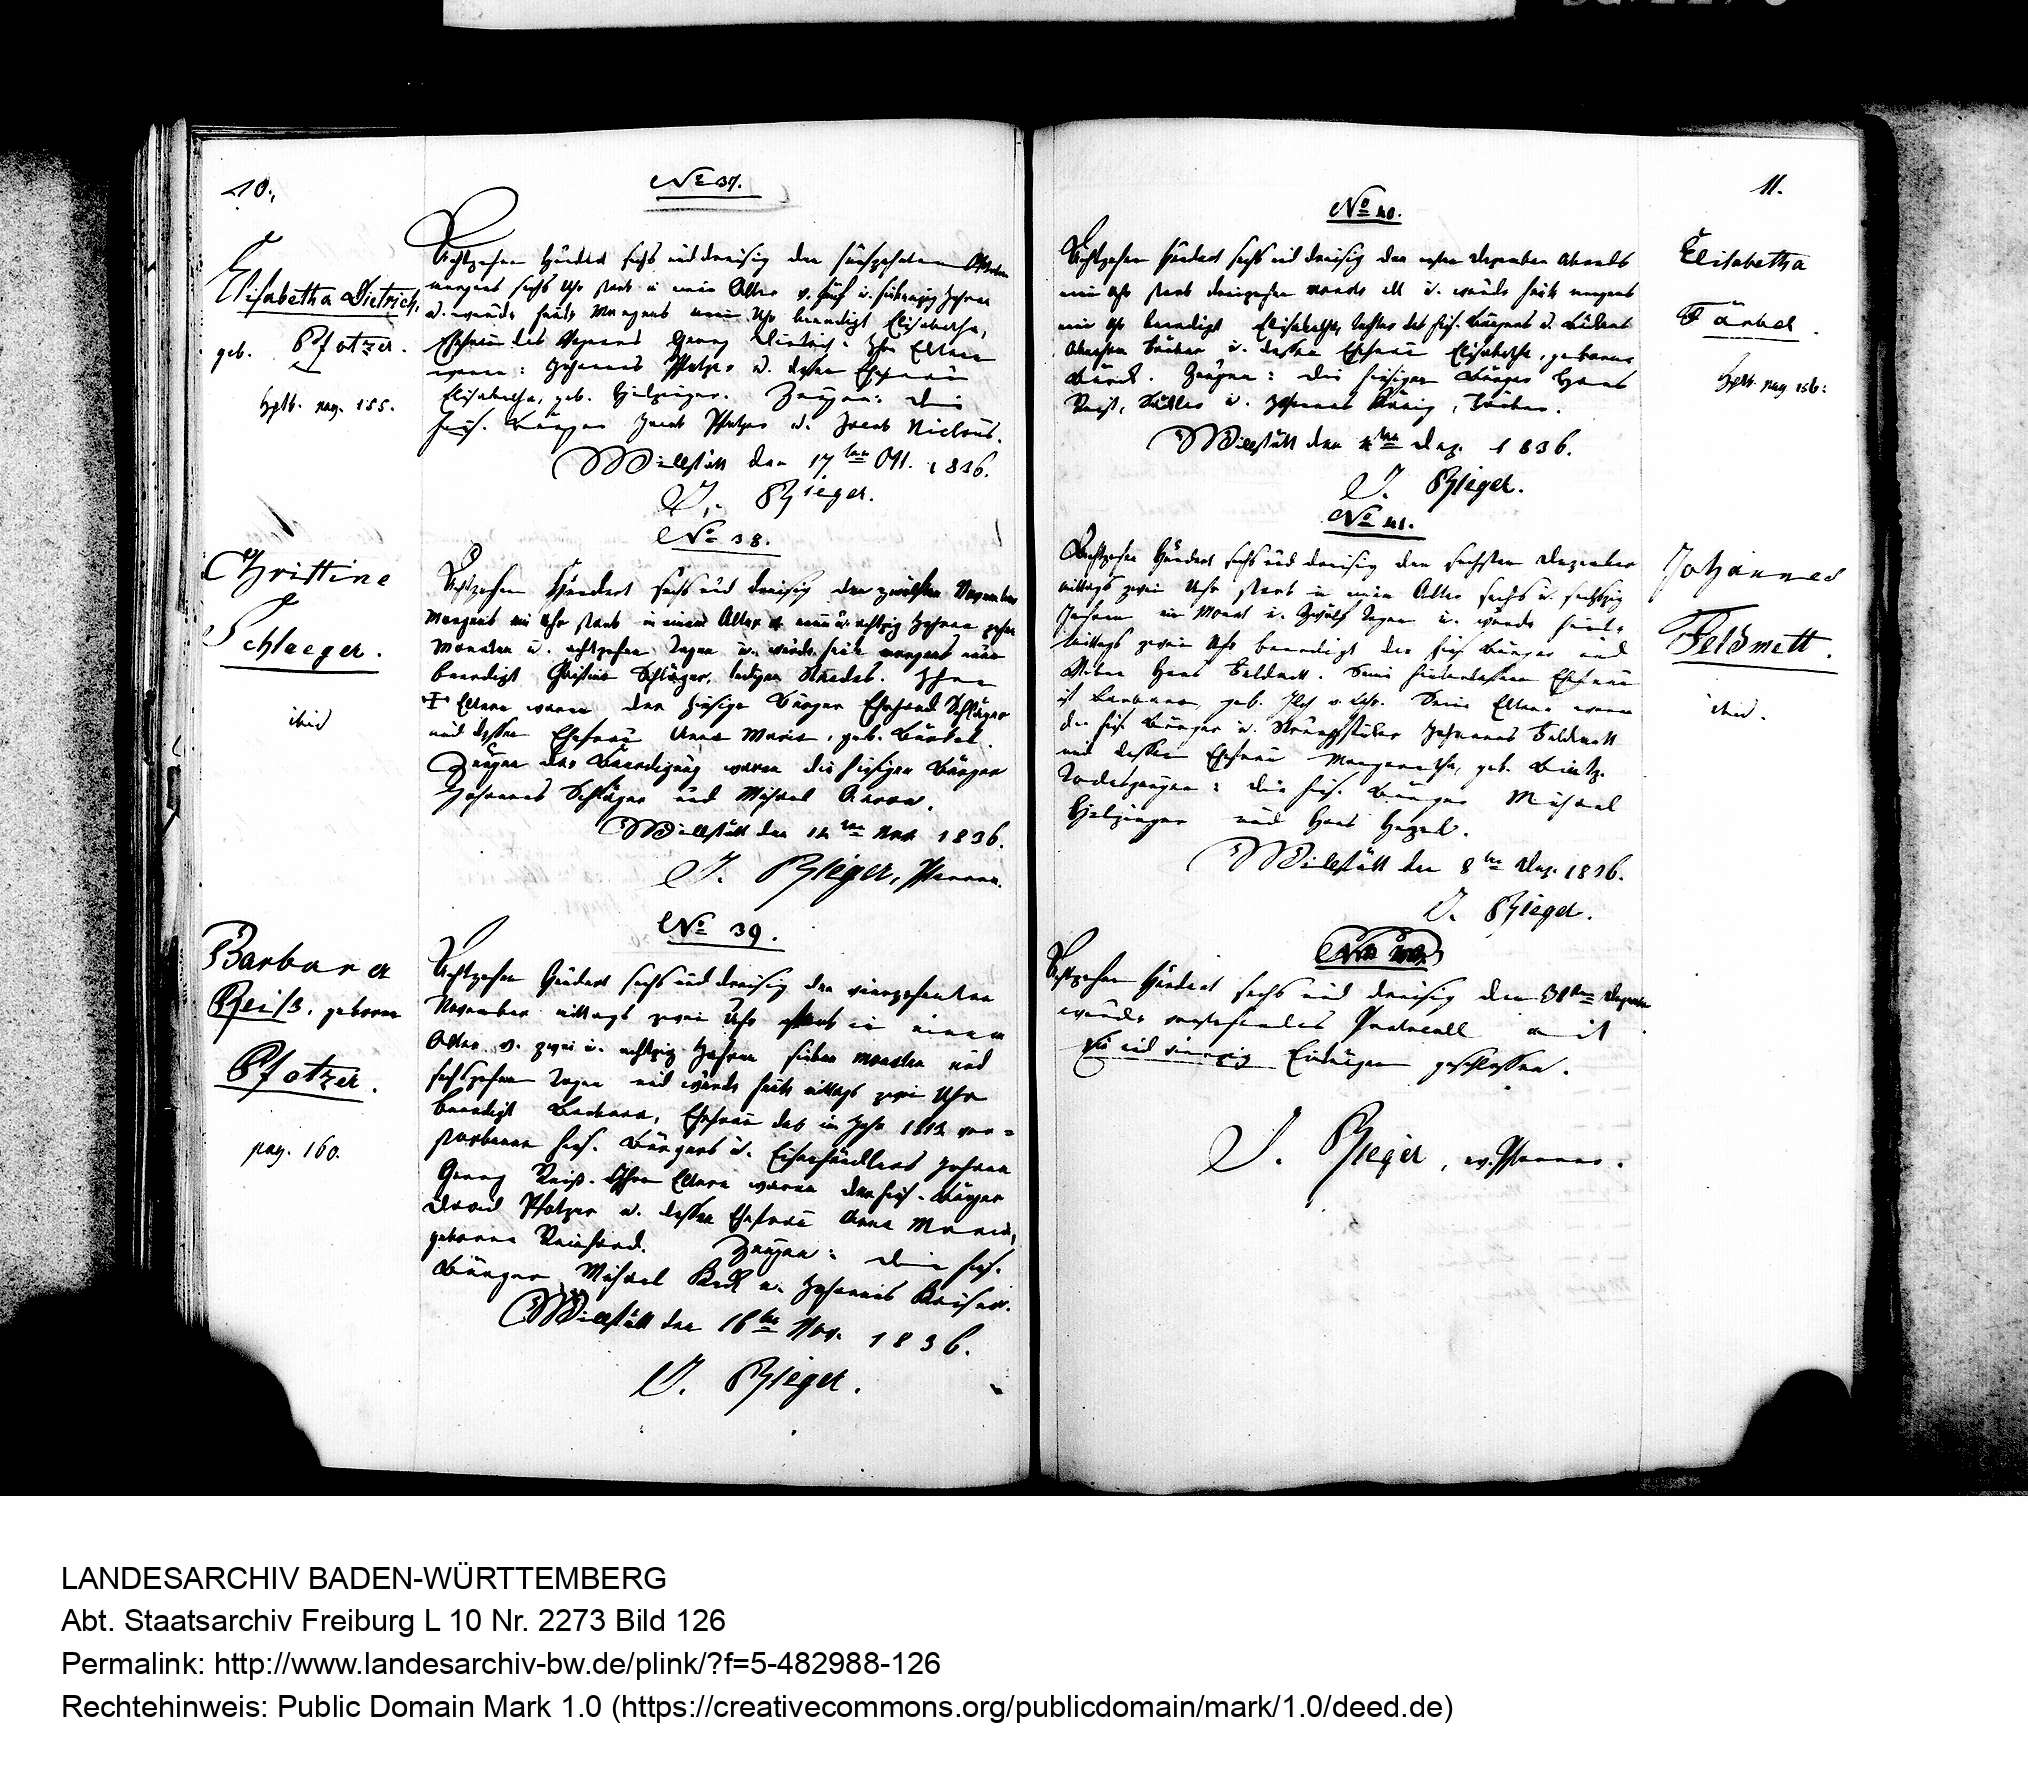 10.
No 37.
Elisabetha Dietrich,
geb. Pfotzer.
Hptb. pag. 155.
Achtzehn Hundert sechs und dreisig den fünfzehnten Oktober
morgens sechs Uhr starb in einem Alter v. fünf u. siebenzig Jahren
u. wurde heute Morgens neun Uhr beerdigt Elisabetha,
Ehefrau des Georg Dietrich. Ihre Eltern
waren: Johannes Pfotzer u. dessen Ehefrau
Elisabetha, geb. Hilzinger. Zeugen: die
hies. Bürger Jacob Pfotzer u. Jacob Niclaus.
Willstätt den 17ten Okt. 1836.
J. Rieger.
No 38.
Christine
Schlaeger.
ibid
Achtzehn Hundert sechs und dreisig den zwölften November
Morgens ein Uhr starb in einem Alter v. neun u. achtzig Jahren zehn
Monaten u. achtzehn Tagen u. wurde heute morgens neun
beerdigt Christine Schläger, ledigen Standes. Ihre
Eltern waren der hiesige Bürger Ehrhard Schläger
und dessen Ehefrau Anna Maria, geb. Bürkel.
Zeugen der Beerdigung waren die hiesigen Bürger
Johannes Schläger und Michael Aaron.
Willstätt den 14ten Nov. 1836.
J. Rieger, Pfarrer.
No 39.
Barbara
Reiß. geborene
Pfotzer.
pag. 160.
Achtzehn Hundert sechs und dreisig den vierzehnten
November mittags zwei Uhr starb in einem
Alter v. zwei u. achtzig Jahren sieben Monaten und
sechszehn Tagen und wurde heute mittags zwei Uhr
beerdigt Barbara, Ehefrau des im Jahr 1812 ver=
storbenen hies. Bürgers u. Eisenhändlers Johann
Georg Reiß. Ihre Eltern waren der hies. Bürger
David Pfotzer u. dessen Ehefrau Anna Maria,
geborene Reinhard. Zeugen: die hies.
Bürger Michael Keck u. Johannes
Willstätt den 16ten Nov. 1836.
J. Rieger.
11.
No 40.
Elisabetha
Färber.
Hptb. pag. 156.
Achtzehn Hundert sechs und dreisig den Dezember Abends
neun Uhr starb dreizehn Monate alt u. wurde heute morgens
neun Uhr beerdigt Elisabetha, Tochter des hies. Bürgers u.
Färber u. dessen Ehefrau Elisabetha, geborene
Zeugen: die hiesigen Bürger Hans
u. Johannes König, Färber.
Willstätt den 4ten Dez. 1836.
J. Rieger.
No 41.
Johannes
Feldmett.
ibid.
Achtzehn Hundert sechs und dreisig den sechsten Dezember
mittags zwei Uhr starb in einem Alter sechs u. sechszig
Jahren ein Monat u. zwölf Tagen u. wurde heute
mittags zwei Uhr beerdigt der hies. Bürger und
Weber Hans Feldmett. Seine hinterlassene Ehefrau
ist Barbara, geb. v. Lahr. Seine Eltern waren
der hies. Bürger u. Johannes Feldmett
und dessen Ehefrau Margaretha, geb.
Todeszeugen: die hies. Bürger Michael
Hilzinger und Hans
Willstätt den 8ten Dez. 1836.
J. Rieger.
Achtzehn Hundert sechs und dreisig den 31ten Dezember
wurde vorstehendes Protocoll mit
Ein und vierzig Einträgen geschlossen.
J. Rieger, Pfarrer.
LANDESARCHIV BADEN-WÜRTTEMBERG
Abt. Staatsarchiv Freiburg L 10 Nr. 2273 Bild 126
Permalink: http://www.landesarchiv-bw.de/plink/?f=5-482988-126
Rechtehinweis: Public Domain Mark 1.0 (https://creativecommons.org/publicdomain/mark/1.0/deed.de)